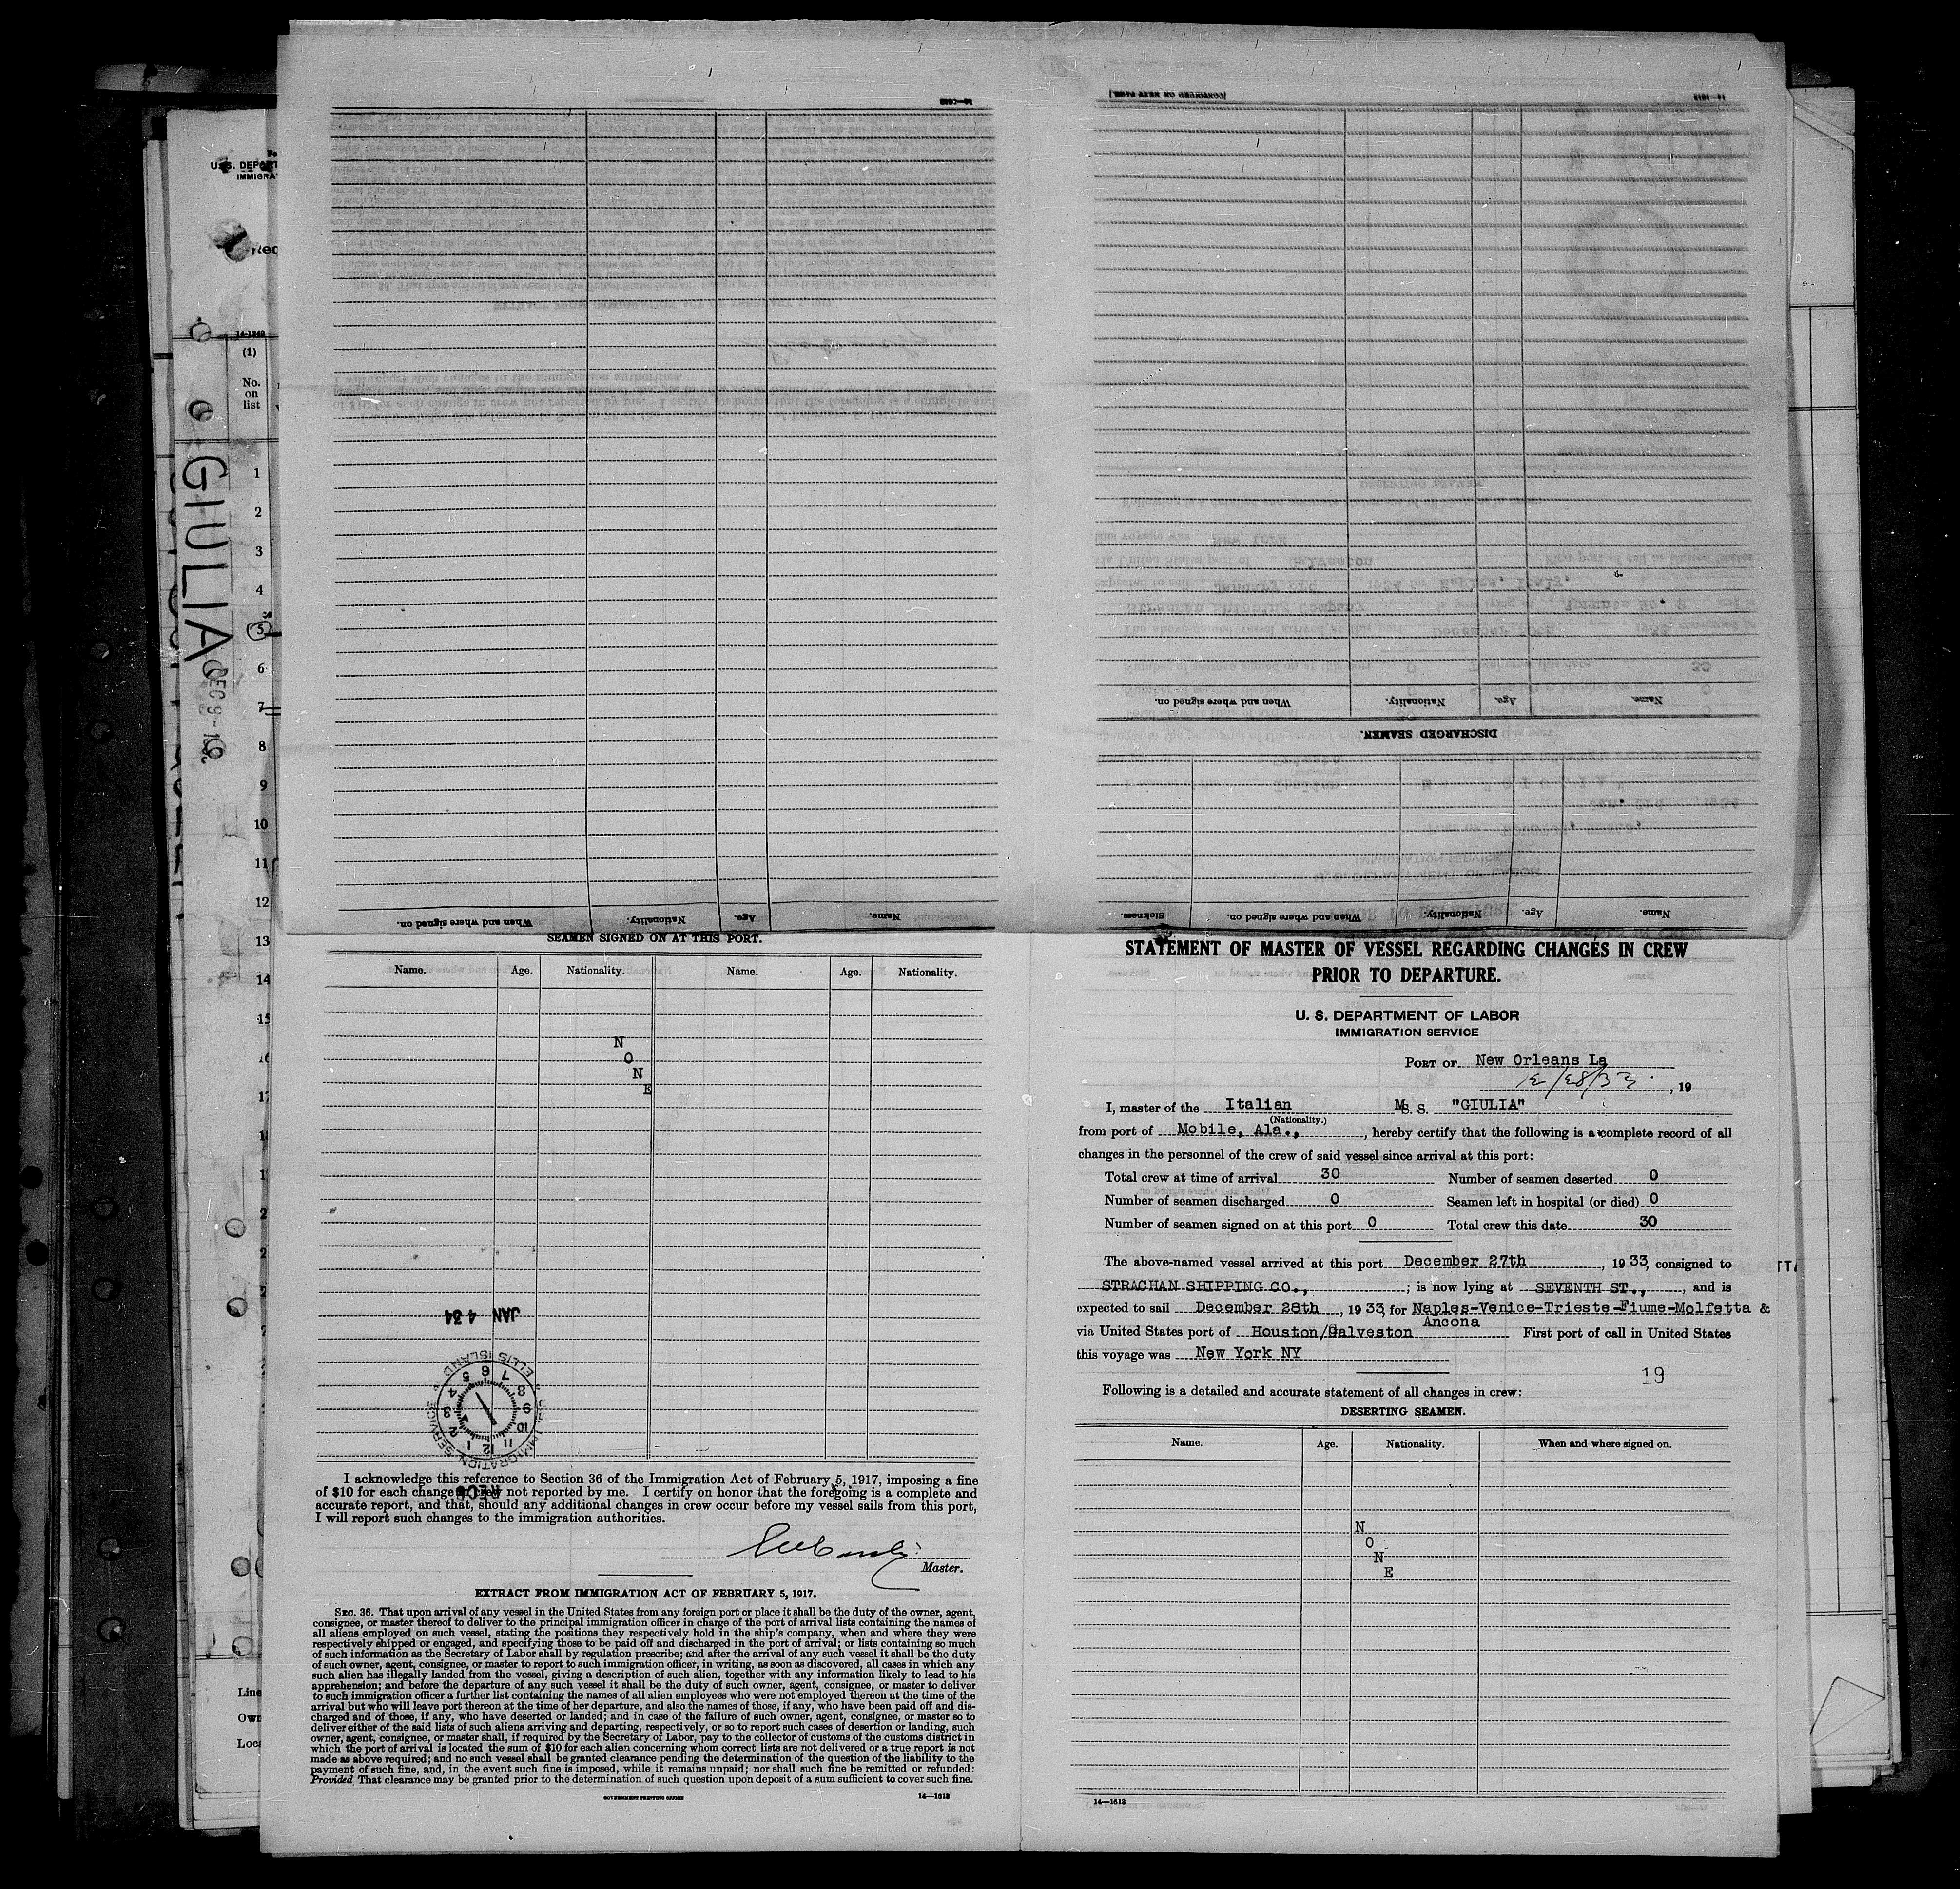 U.S. DEPART
IMMIGRA
14-1240
(1)
No.
on
list
1
2
3
4
5
6
7
8
9
10
11
12
13
14
15
GIULIA
When and where signed on.
Nationality.
Age.
Name.
Name.
Age.
Nationality.
When and where signed on.
DISCHARGED SEAMEN.
Sickness.
When and where signed on.
Nationality.
Age.
Name.
SEAMEN SIGNED ON AT THIS PORT.
Name. Age. Nationality. Name. Age. Nationality.
N
O
N
E
JAN 4 34
ELLIS ISLAND
I acknowledge this reference to Section 36 of the Immigration Act of February 5, 1917, imposing a fine
of $10 for each change in crew not reported by me. I certify on honor that the foregoing is a complete and
accurate report, and that, should any additional changes in crew occur before my vessel sails from this port,
I will report such changes to the immigration authorities.
Master.
EXTRACT FROM IMMIGRATION ACT OF FEBRUARY 5, 1917.
SEC. 36. That upon arrival of any vessel in the United States from any foreign port or place it shall be the duty of the owner, agent,
consignee, or master thereof to deliver to the principal immigration officer in charge of the port of arrival lists containing the names of
all aliens employed on such vessel, stating the positions they respectively hold in the ship's company, when and where they were
respectively shipped or engaged, and specifying those to be paid off and discharged in the port of arrival; or lists containing so much
of such information as the Secretary of Labor shall by regulation prescribe; and after the arrival of any such vessel it shall be the duty
of such owner, agent, consignee, or master to report to such immigration officer, in writing, as soon as discovered, all cases in which any
such alien has illegally landed from the vessel, giving a description of such alien, together with any information likely to lead to his
apprehension; and before the departure of any such vessel it shall be the duty of such owner, agent, consignee, or master to deliver
to such immigration officer a further list containing the names of all alien employees who were not employed thereon at the time of the
arrival but who will leave port thereon at the time of her departure, and also the names of those, if any, who have been paid off and dis-
charged and of those, if any, who have deserted or landed; and in case of the failure of such owner, agent, consignee, or master so to
deliver either of the said lists of such aliens arriving and departing, respectively, or so to report such cases of desertion or landing, such
owner, agent, consignee, or master shall, if required by the Secretary of Labor, pay to the collector of customs of the customs district in
which the port of arrival is located the sum of $10 for each alien concerning whom correct lists are not delivered or a true report is not
made as above required; and no such vessel shall be granted clearance pending the determination of the question of the liability to the
payment of such fine, and, in the event such fine is imposed, while it remains unpaid; nor shall such fine be remitted or refunded:
Provided, That clearance may be granted prior to the determination of such question upon deposit of a sum sufficient to cover such fine.
GOVERNMENT PRINTING OFFICE 14—1613
STATEMENT OF MASTER OF VESSEL REGARDING CHANGES IN CREW
PRIOR TO DEPARTURE.
U. S. DEPARTMENT OF LABOR
IMMIGRATION SERVICE
PORT OF New Orleans La
12/28/33, 19
I, master of the Italian MS. S. "GIULIA"
(Nationality.)
from port of Mobile, Ala., , hereby certify that the following is a complete record of all
changes in the personnel of the crew of said vessel since arrival at this port:
Total crew at time of arrival 30 Number of seamen deserted 0
Number of seamen discharged 0 Seamen left in hospital (or died) 0
Number of seamen signed on at this port 0 Total crew this date 30
The above-named vessel arrived at this port December 27th, 1933, consigned to
STRACHAN SHIPPING CO., ; is now lying at SEVENTH ST., , and is
expected to sail December 28th, 1933, for Naples-Venice-Trieste-Fiume-Molfetta &
Ancona
via United States port of Houston/Galveston First port of call in United States
this voyage was New York NY
19
Following is a detailed and accurate statement of all changes in crew:
DESERTING SEAMEN.
Name. Age. Nationality. When and where signed on.
N
O
N
E
14—1613